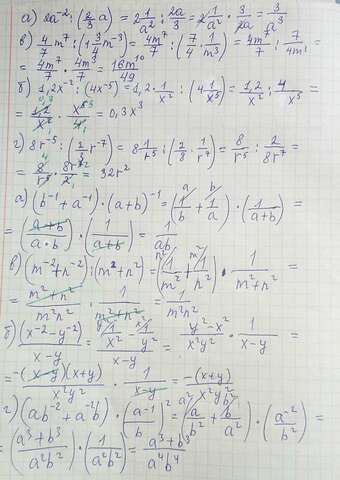 а) 2a⁻² : (2/3 a) = 2 1/a² : 2a/3 = 2 1/a² · 3/2a = 3/a³
в) 4/7 m⁷ : (1 3/4 m⁻³) = 4m⁷/7 : (7/4 · 1/m³) = 4m⁷/7 : 7/4m³ =
= 4m⁷/7 · 4m³/7 = 16m¹⁰/49
б) 1,2x⁻² : (4x⁻⁵) = 1,2 · 1/x² : (4 1/x⁵) = 1,2/x² : 4/x⁵ =
= 1,2/x² · x⁵/4 = 0,3x³
г) 8r⁻⁵ : (2/8 r⁻⁷) = 8 1/r⁵ : (2/8 · 1/r⁷) = 8/r⁵ : 2/8r⁷ =
= 8/r⁵ · 8r⁷/2 = 32r²
а) (b⁻¹ + a⁻¹) · (a+b)⁻¹ = (1/b + 1/a) · (1/(a+b)) =
= ((a+b)/(a·b)) · (1/(a+b)) = 1/ab
в) (m⁻² + n⁻²) : (m² + n²) = (1/m² + 1/n²) · 1/(m²+n²) =
= (m²+n²)/m²n² · 1/(m²+n²) = 1/m²n²
б) (x⁻² − y⁻²)/(x−y) = (1/x² − 1/y²)/(x−y) = (y²−x²)/x²y² · 1/(x−y) =
= −(x−y)(x+y)/x²y² · 1/(x−y) = −(x+y)/x²y²
г) (ab⁻² + a⁻²b) · (a⁻¹/b)² = (a/b² + b/a²) · (a⁻²/b²) =
= ((a³+b³)/a²b²) · (1/a²b²) = (a³+b³)/a⁴b⁴